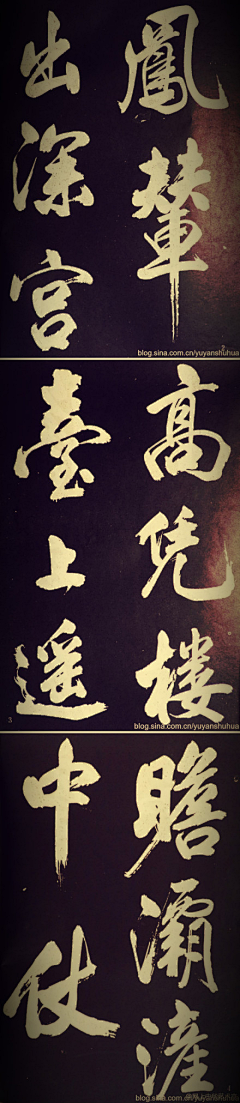 鳳輦
出深宫
blog.sina.com.cn/yuyanshuhua
高凭楼
臺上遥
3
blog.sina.com.cn/yuyanshuhua
瞻灞滻
中仗
blog.sina.com.cn/yuyanshuhua